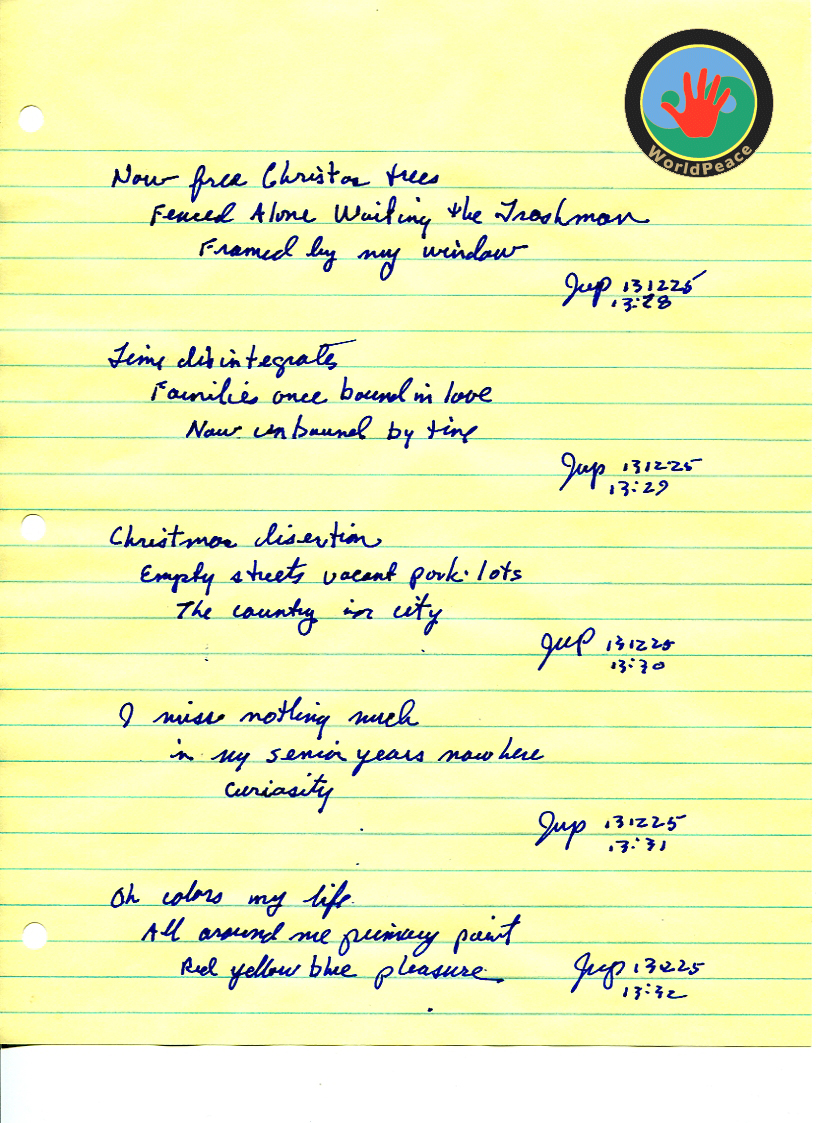 WorldPeace
Now free Christas trees
Fenced Alone Waiting the Trashman
Framed by my window
Jup 131225
13:28
Time disintegrates
Families once bound in love
Now unbound by time
Jup 131225
13:29
Christmas disertion
Empty streets vacant park·lots
The country in city
JUP 131225
13:30
I miss nothing much
in my senior years now here
curiasity
Jup 131225
13:31
Oh colors my life
All around me primary paint
Red yellow blue pleasure
Jup 131225
13:32